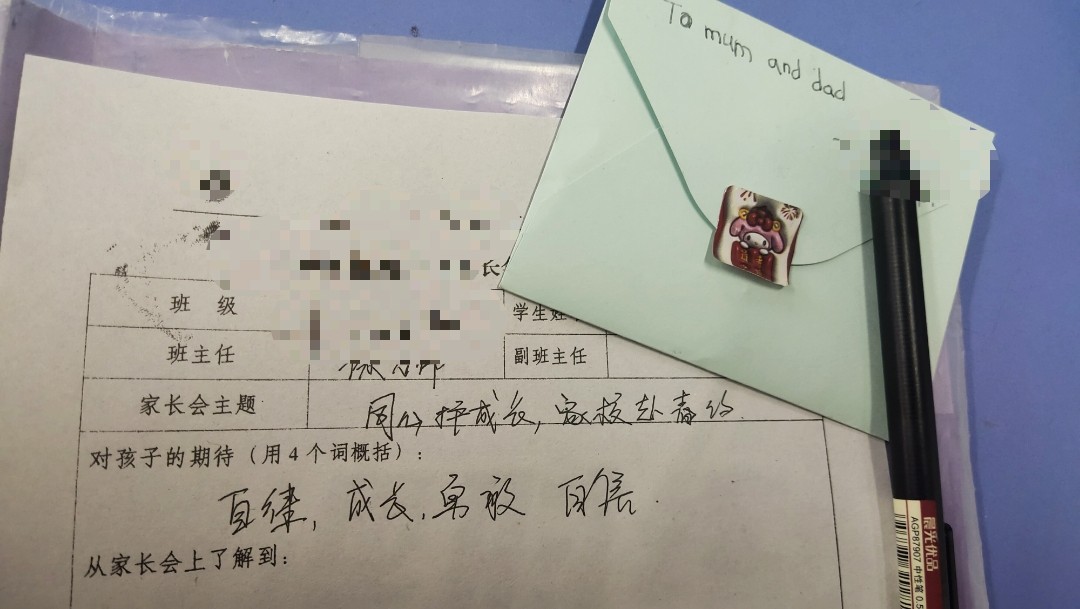 To mum and dad
班 级
学生姓
班主任
副班主任
家长会主题
同心护成长,家校赴春约.
对孩子的期待(用4个词概括):
自律,成长,勇敢 自信.
从家长会上了解到:
晨光优品
AGP87907 中性笔 0.5